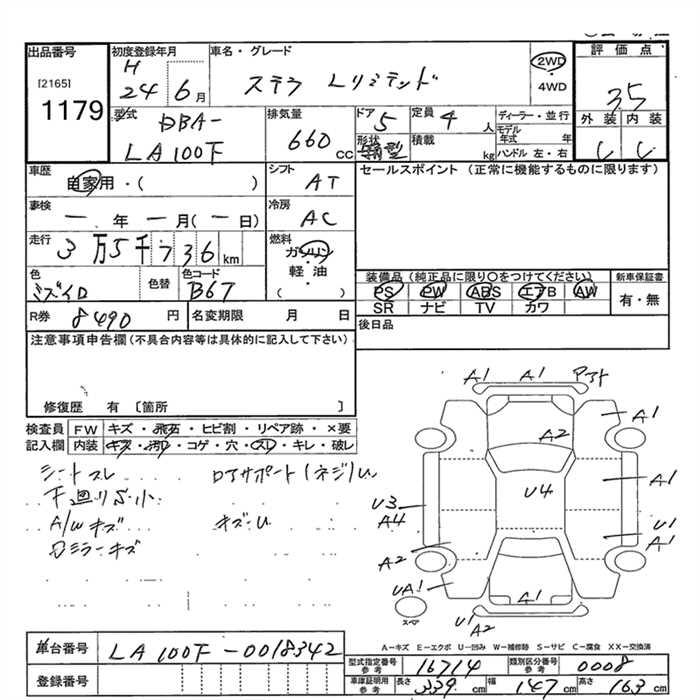 出品番号 初度登録年月 車名・グレード 評価点
[2165] H 24 6月 ステラ Lリミテッド 2WD 3.5
1179 4WD
型式 排気量 ドア 定員 ディーラー・並行 外装 内装
DBA- 660cc 5 4人 モデル年式 年 C C
LA100F 形状 箱型 積載 kg ハンドル 左・右
車歴 シフト セールスポイント (正常に機能するものに限ります)
自家用・( ) AT
車検 冷房
ー年ー月(ー日) AC
走行 燃料
3万5千736km ガソリン・軽油・( )
色 色替 色コード 装備品(純正品に限り○をつけてください) 新車保証書
ミズイロ B67 PS PW ABS エアB AW 有・無
SR ナビ TV カワ
R券 8490円 名変期限 月 日 後日品
注意事項申告欄(不具合内容等は具体的に記入して下さい)
修復歴 有 〔箇所 〕
検査員 FW キズ・飛石・ヒビ割・リペア跡・×要
記入欄 内装 キズ・汚れ・コゲ・穴・スレ・キレ・破レ
シートスレ
下廻りS小
A/Wキズ キズ・U
ミラーキズ
A1 A1
A1
A2
A1
U4
U3 A4
U1 A1
A2
UA1
A1
スペア
U1 A2
A-キズ E-エクボ U-凹み W-補修跡 S-サビ C-腐食 XX-交換済
車台番号 LA100F-0018342
型式指定番号 参考 16714 類別区分番号 参考 0008
登録番号 車庫証明用 参考 長さ 339cm 幅 147cm 高さ 163cm